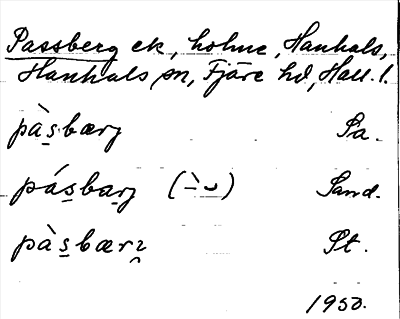 Passberg ek, holme, Hanhals,
Hanhals sn, Fjäre hd, Hall. l.
pàs̲bærj Pa.
pás̲barj (-̀⌣) Sand.
pàs̲bær Pt.
1950.